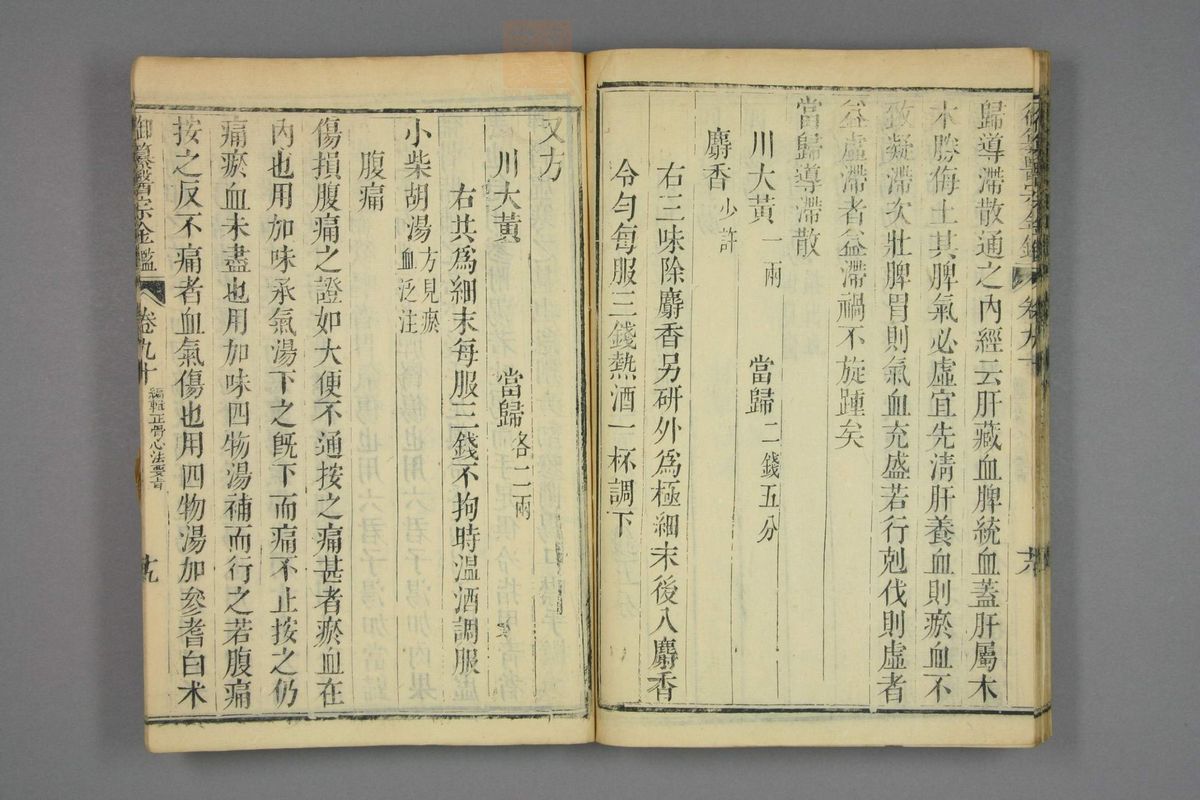 御纂醫宗金鑑 卷九十
歸導滯散通之內經云肝藏血脾統血蓋肝屬木
木勝侮土其脾氣必虛宜先清肝養血則瘀血不
致凝滯次壯脾胃則氣血充盛若行剋伐則虛者
益虛滯者益滯禍不旋踵矣
當歸導滯散
川大黃一兩 當歸二錢五分
麝香少許
右三味除麝香另研外為極細末後入麝香
令勻每服三錢熱酒一杯調下
又方
川大黃 當歸各二兩
右共為細末每服三錢不拘時溫酒調服
小柴胡湯方見瘀血泛注
腹痛
傷損腹痛之證如大便不通按之痛甚者瘀血在
內也用加味承氣湯下之既下而痛不止按之仍
痛瘀血未盡也用加味四物湯補而行之若腹痛
按之反不痛者血氣傷也用四物湯加參耆白朮
御纂醫宗金鑑 卷九十 編輯正骨心法要旨 十九